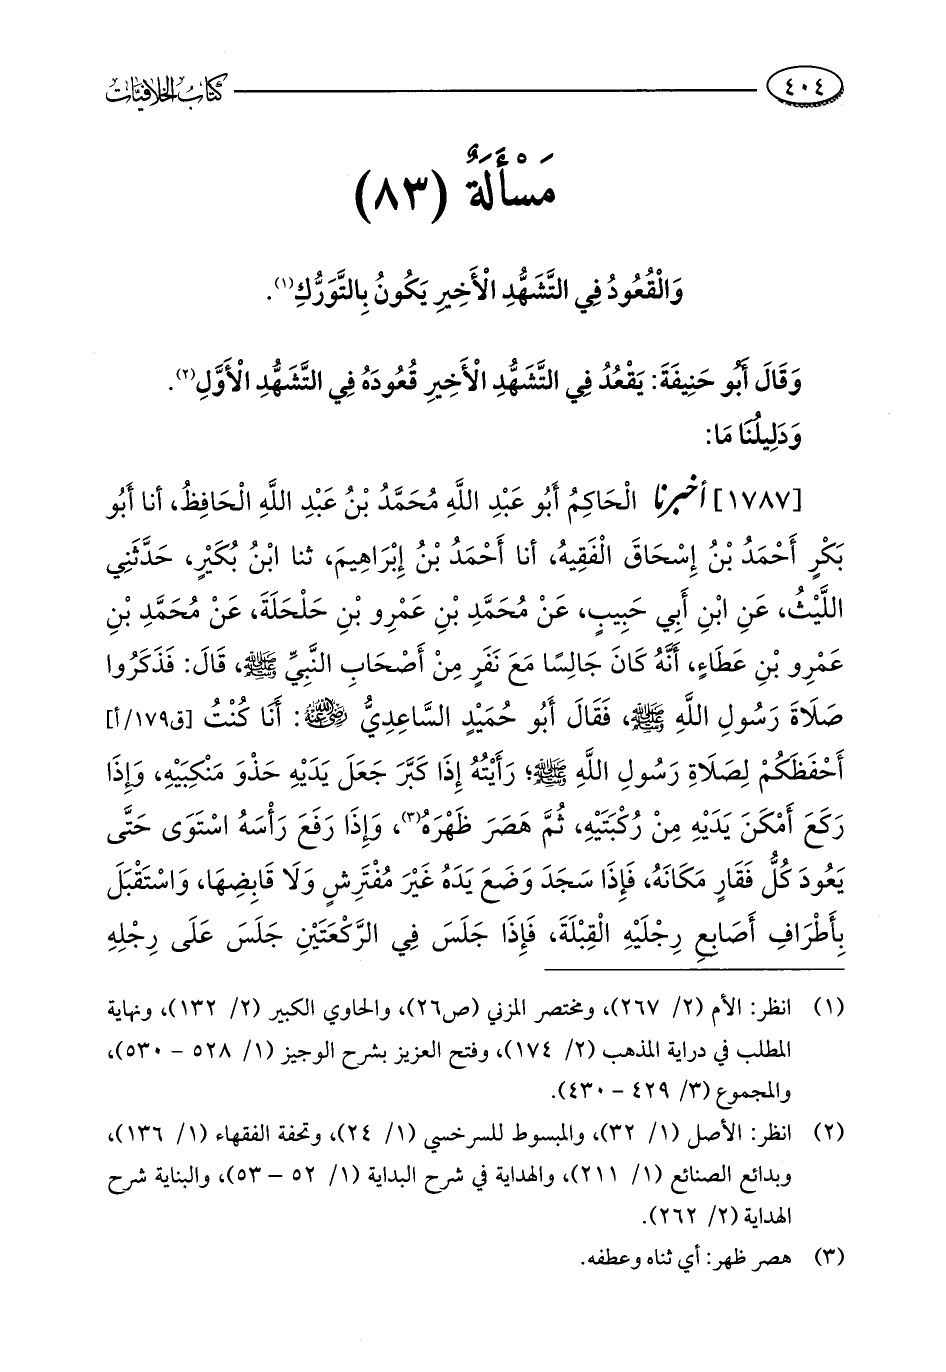 ٤٠٤ كتاب الخلافيات
مَسْأَلَةٌ (٨٣)
وَالْقُعُودُ فِي التَّشَهُّدِ الْأَخِيرِ يَكُونُ بِالتَّوَرُّكِ(١).
وَقَالَ أَبُو حَنِيفَةَ: يَقْعُدُ فِي التَّشَهُّدِ الْأَخِيرِ قُعُودَهُ فِي التَّشَهُّدِ الْأَوَّلِ(٢).
وَدَلِيلُنَا مَا:
[١٧٨٧] أخبرنا الْحَاكِمُ أَبُو عَبْدِ اللَّهِ مُحَمَّدُ بْنُ عَبْدِ اللَّهِ الْحَافِظُ، أنا أَبُو
بَكْرٍ أَحْمَدُ بْنُ إِسْحَاقَ الْفَقِيهُ، أنا أَحْمَدُ بْنُ إِبْرَاهِيمَ، ثنا ابْنُ بُكَيْرٍ، حَدَّثَنِي
اللَّيْثُ، عَنِ ابْنِ أَبِي حَبِيبٍ، عَنْ مُحَمَّدِ بْنِ عَمْرِو بْنِ حَلْحَلَةَ، عَنْ مُحَمَّدِ بْنِ
عَمْرِو بْنِ عَطَاءٍ، أَنَّهُ كَانَ جَالِسًا مَعَ نَفَرٍ مِنْ أَصْحَابِ النَّبِيِّ ﷺ، قَالَ: فَذَكَرُوا
صَلَاةَ رَسُولِ اللَّهِ ﷺ، فَقَالَ أَبُو حُمَيْدٍ السَّاعِدِيُّ رضي الله عنه: أَنَا كُنْتُ [ق١٧٩/أ]
أَحْفَظَكُمْ لِصَلَاةِ رَسُولِ اللَّهِ ﷺ؛ رَأَيْتُهُ إِذَا كَبَّرَ جَعَلَ يَدَيْهِ حَذْوَ مَنْكِبَيْهِ، وَإِذَا
رَكَعَ أَمْكَنَ يَدَيْهِ مِنْ رُكْبَتَيْهِ، ثُمَّ هَصَرَ ظَهْرَهُ(٣)، وَإِذَا رَفَعَ رَأْسَهُ اسْتَوَى حَتَّى
يَعُودَ كُلُّ فَقَارٍ مَكَانَهُ، فَإِذَا سَجَدَ وَضَعَ يَدَهُ غَيْرَ مُفْتَرِشٍ وَلَا قَابِضِهَا، وَاسْتَقْبَلَ
بِأَطْرَافِ أَصَابِعِ رِجْلَيْهِ الْقِبْلَةَ، فَإِذَا جَلَسَ فِي الرَّكْعَتَيْنِ جَلَسَ عَلَى رِجْلِهِ
(١) انظر: الأم (٢/ ٢٦٧)، ومختصر المزني (ص٢٦)، والحاوي الكبير (٢/ ١٣٢)، ونهاية
المطلب في دراية المذهب (٢/ ١٧٤)، وفتح العزيز بشرح الوجيز (١/ ٥٢٨ – ٥٣٠)،
والمجموع (٣/ ٤٢٩ – ٤٣٠).
(٢) انظر: الأصل (١/ ٣٢)، والمبسوط للسرخسي (١/ ٢٤)، وتحفة الفقهاء (١/ ١٣٦)،
وبدائع الصنائع (١/ ٢١١)، والهداية في شرح البداية (١/ ٥٢ – ٥٣)، والبناية شرح
الهداية (٢/ ٢٦٢).
(٣) هصر ظهر: أي ثناه وعطفه.